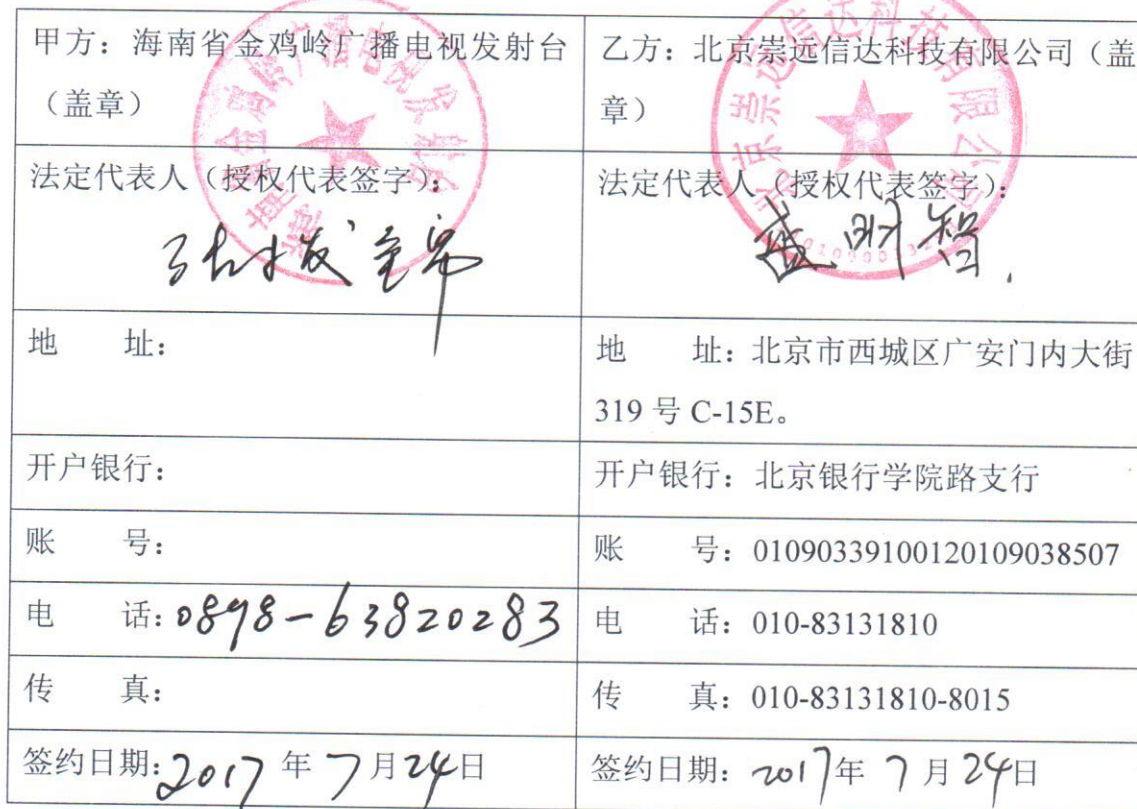 甲方：海南省金鸡岭广播电视发射台
（盖章）
乙方：北京崇远信达科技有限公司（盖
章）
法定代表人（授权代表签字）：
法定代表人（授权代表签字）：
盛明智.
地 址：
地 址：北京市西城区广安门内大街
319 号 C-15E。
开户银行：
开户银行：北京银行学院路支行
账 号：
账 号：01090339100120109038507
电 话：0898-63820283
电 话：010-83131810
传 真：
传 真：010-83131810-8015
签约日期：2017 年 7 月 24 日
签约日期：2017 年 7 月 24 日